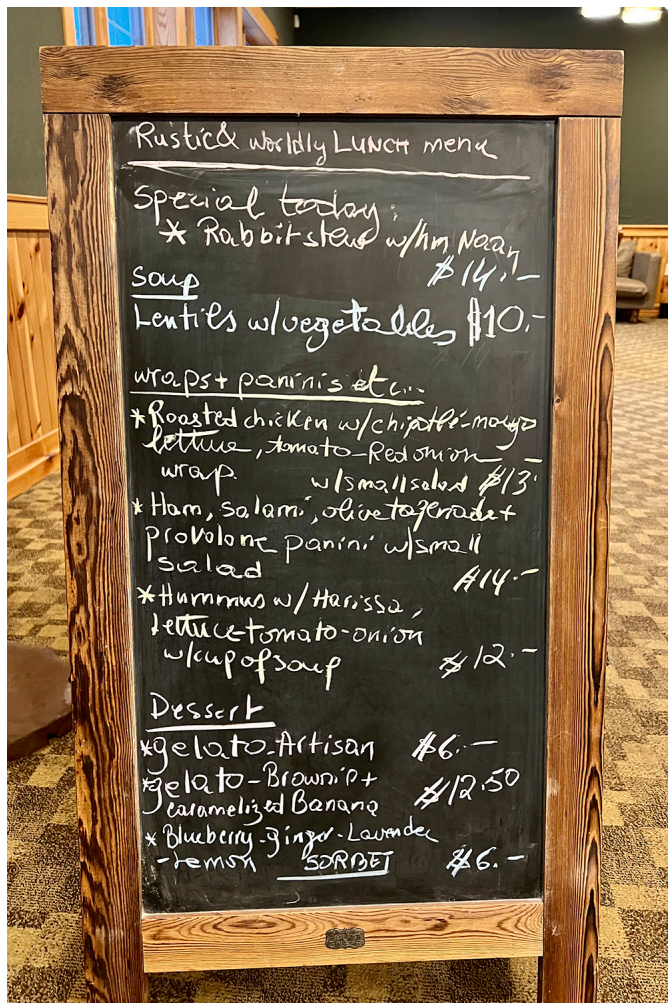 Rustic & worldly LUNCH menu
Special today:
* Rabbit stew w/hm Naan
$14.-
Soup
Lentils w/vegetables $10.-
wraps + paninis etc...
*Roasted chicken w/chipotlé-mayo
lettuce, tomato-Red onion -
wrap. w/small salad $13.-
*Ham, salami, olive tapenade +
provolone panini w/small
salad $14.-
*Hummus w/ Harissa,
lettuce-tomato-onion
w/cup of soup $12.-
Dessert
*gelato-Artisan $6.-
*gelato-Brownie +
caramelized Banana $12.50
* Blueberry-ginger-Lavender
-Lemon SORBET $6.-